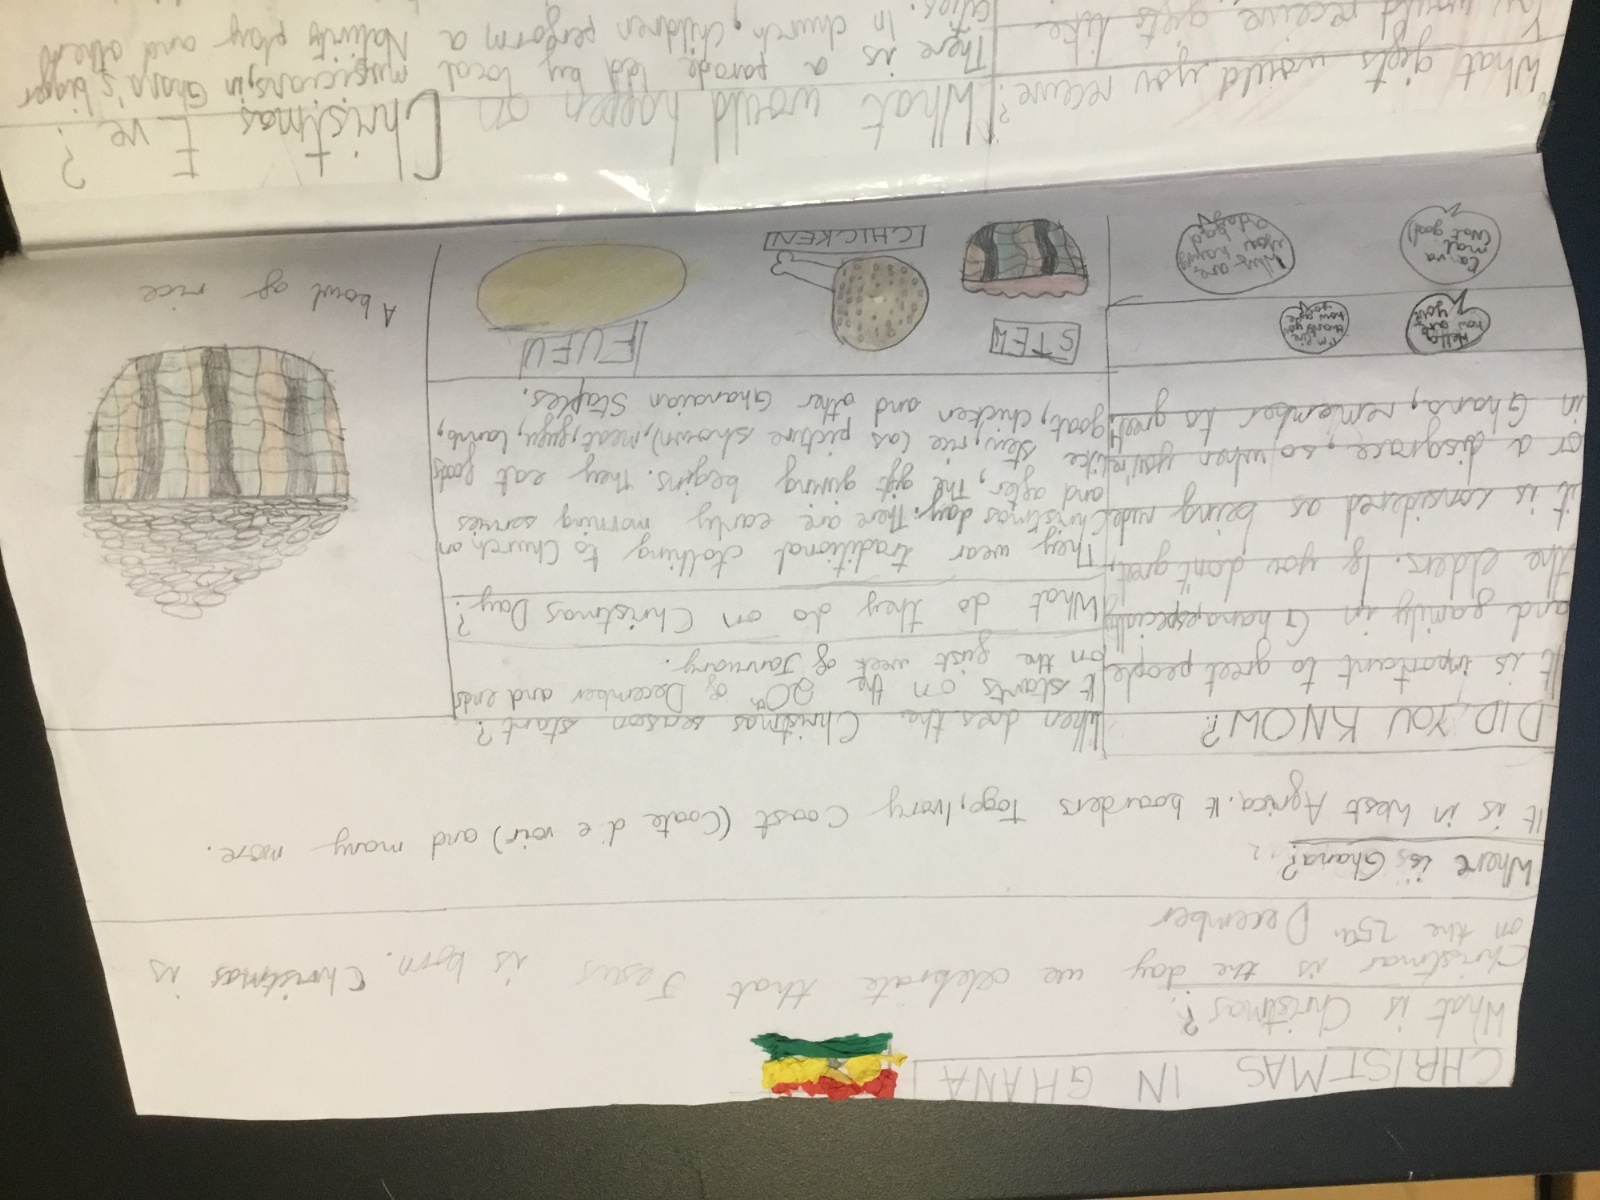 CHRISTMAS IN GHANA
What is Christmas?
Christmas is the day we celebrate that Jesus is born. Christmas is
on the 25th December
Where is Ghana?
It is in West Africa. It boarders Togo, Ivory Coast (Coate d e voir) and many more.
DID YOU KNOW?
It is inportant to greet people
and family in Ghana, especially
the elders. If you don't greet,
it is considered as being rude
or a disgrace, so when you're
in Ghana, remember to greet.
Hello
how are
you?
I'm fine
thank you
how are
you
Ean va
mal
(Not good)
Why are
you having
a bad
When does the Christmas season start?
It starts on the 20th of December and ends
on the first week of Janruary.
What do they do on Christmas Day?
They wear traditional clothing to Church on
Christmas day. There are early morning servies
and after, the gift giving begins. They eat foods
like stew, rice (as picture shown), meat, fufu, lamb,
goat, chicken and other Ghanaian Staples.
STEW
CHICKEN
FUFU
A bowl of rice
What gifts would you receive?
You would receive gifts like
What would happen on Christmas Eve?
There is a parade led by local musicians, in Ghana's bigger
cities. In church, children perform a Nativity play and others